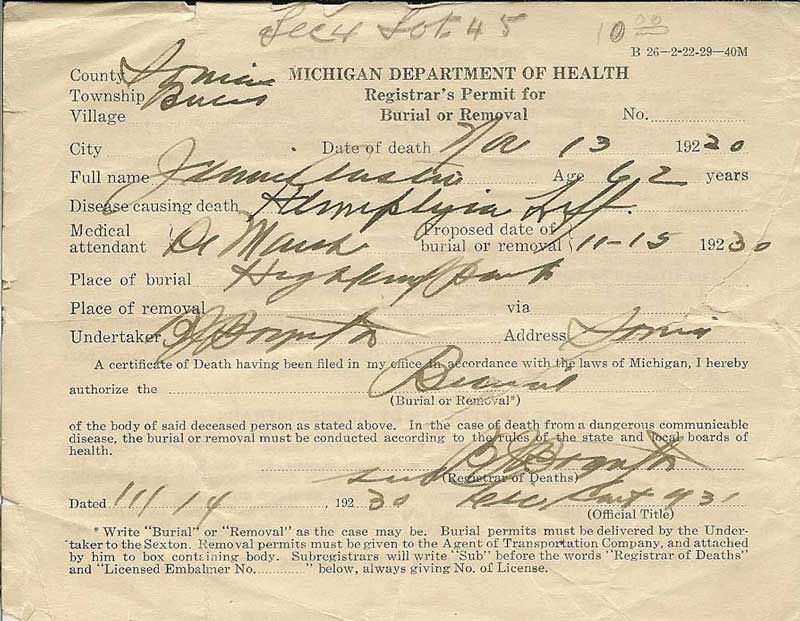 Sec 4 Lot 45 10 00
B 26—2-22-29—40M
County Ionia MICHIGAN DEPARTMENT OF HEALTH
Township Registrar's Permit for
Village Burial or Removal No.
City Date of death Nov 13 192 30
Full name Austin Age 62 years
Disease causing death Hemiplegia Left.
Medical attendant De Marsh Proposed date of burial or removal 11-15 192 30
Place of burial Highland Park
Place of removal via
Undertaker B J Boynton Address Ionia
A certificate of Death having been filed in my office in accordance with the laws of Michigan, I hereby
authorize the Burial
(Burial or Removal*)
of the body of said deceased person as stated above. In the case of death from a dangerous communicable
disease, the burial or removal must be conducted according to the rules of the state and local boards of
health.
B J Boynton
sub (Registrar of Deaths)
Dated 11/14, 192 30 931
(Official Title)
* Write "Burial" or "Removal" as the case may be. Burial permits must be delivered by the Under-
taker to the Sexton. Removal permits must be given to the Agent of Transportation Company, and attached
by him to box containing body. Subregistrars will write "Sub" before the words "Registrar of Deaths"
and "Licensed Embalmer No............" below, always giving No. of License.